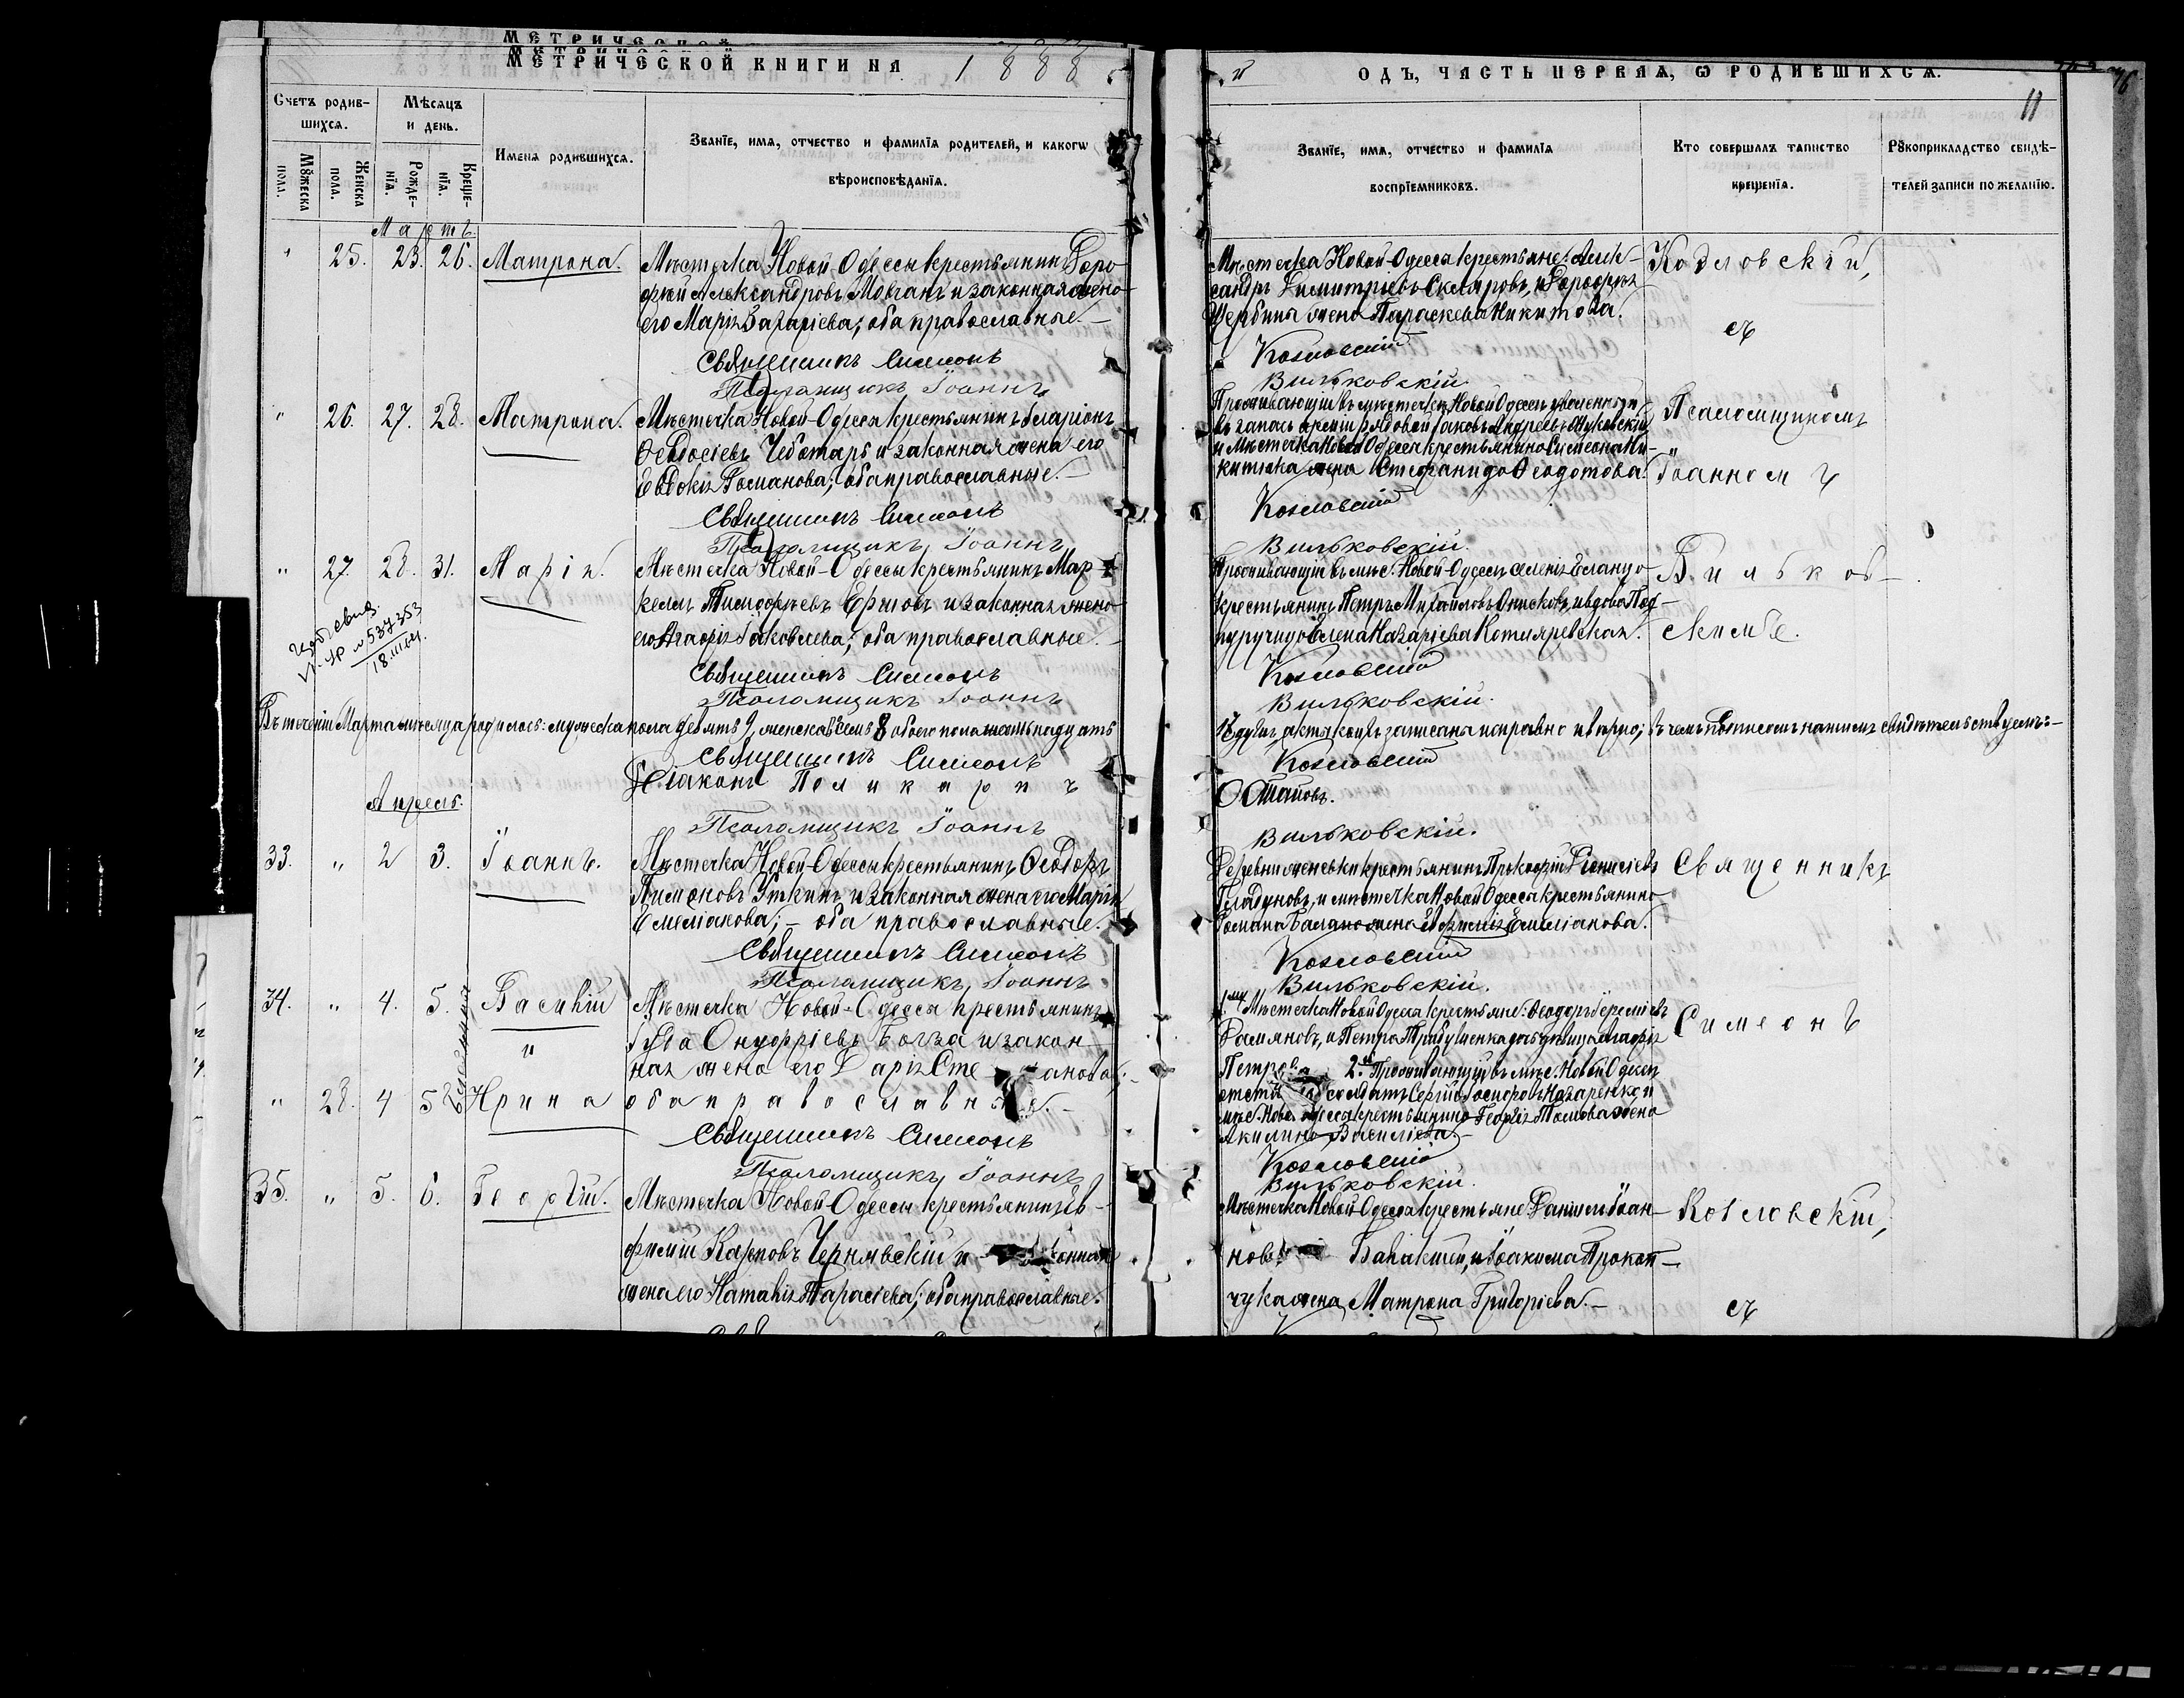 МЕТРИЧЕСКОЙ КНИГИ НА 1888
ОДЪ, ЧАСТЬ ПЕРВАЯ, Ѡ РОДИВШИХСЯ.
11
Счетъ родив-
шихся.
Мѣсяцъ
и день.
Мꙋжеска
пола.
Женска
пола.
Рожде-
нїя.
Креще-
нїя.
Имена родившихся.
Званїе, имя, отчество и фамилїя родителей, и какогѡ
вѣроисповѣданїя.
Званїе, имя, отчество и фамилїя
воспрїемниковъ.
Кто совершалъ таинство
крещенїя.
Рꙋкоприкладство свидѣ-
телей записи по желанїю.
Мартъ
" 25. 23. 26. Матрона.
Мѣстечка Новой-Одессы крестьянинъ Доро-
фей Александровъ Мовчанъ и законная жена
его Марія Захаріева; оба православные.-
Священникъ Симеонъ
Псаломщикъ Іоаннъ
Мѣстечка Новой-Одесса крестьяне: Алек-
сандръ Димитріевъ Скляровъ, и Дорофея
Щербины жена Параскева Никитова.
Козловскій
Вильковскій.
Козловскій,
съ
" 26. 27. 28. Матрона.
Мѣстечка Новой-Одесса крестьянинъ Иларіонъ
Ѳеодосіевъ Чеботарь и законная жена его
Евдокія Романова; оба православные.-
Священникъ Симеонъ
Псаломщикъ, Іоаннъ
Проживающій въ мѣстечкѣ Новой Одессѣ уволенный
въ запасъ арміи рядовой Іаковъ Андреевъ Жуковскій
и мѣстечка Новой Одесса крестьянина Симеона Ни-
китюка жена Стефанида Ѳеодотова.
Козловскій
Вильковскій.
Псаломщикомъ
Іоанномъ
" 27. 28. 31. Марія.
Мѣстечка Новой-Одессы крестьянинъ Мар-
келъ Тимофеевъ Ершовъ и законная жена
его Агафія Іаковлева; оба православные.
Священникъ Симеонъ
Псаломщикъ Іоаннъ
Проживающій въ мѣс. Новой-Одессѣ селенія Еланца
крестьянинъ Петръ Михайловъ Онисковъ, и вдова Под-
поручица Елена Назаріева Котляревская.
Козловскій
Вильковскій.
Вильков-
скимъ.
537353
18.
Въ теченіи Марта мѣсяца родилось: мужеска пола девять 9, женска 8 обоего пола
акты коихъ записаны исправно и вѣрно; въ чемъ подписомъ нашимъ свидѣтельствуемъ:-
Священникъ Симеонъ
Козловскій
Діаконъ Поликарпъ
Остаповъ.
Псаломщикъ Іоаннъ
Вильковскій.
Апрель.
33. " 2 3. Іоаннъ.
Мѣстечка Новой-Одессы крестьянинъ Ѳеодоръ
Пимоновъ Уткинъ и законная жена его Марія
Емеліанова; - оба православные.
Священникъ Симеонъ
Псаломщикъ, Іоаннъ
Деревни крестьянинъ Прокофій Діонисіевъ
Гладуновъ, и мѣстечка Новой Одесса крестьянина
Романа Балана жена Евфимія Емиліанова.
Козловскій
Вильковскій.
Священникъ
34. " 4. 5. Василій
"
" 28. 4 5 Ирина
Близнецы
Мѣстечка Новой-Одесса крестьянинъ
Сава Онуфріевъ и закон-
ная жена его Дарія Сте анова;
оба православные.-
Священникъ Симеонъ
Псаломщикъ, Іоаннъ
1.му Мѣстечка Новой Одесса крестьяне: Ѳеодоръ Ереміевъ
Дамяновъ, и Петра дочь девица Агафія
Петрова. 2.й Проживающій въ мѣс. Новой Одессѣ
отст. солдатъ Сергій Іосифовъ Назаренко и
мѣс. Нов. Одессы крестьянина Георгія жена
Акилина Василіева.-
Козловскій
Вильковскій.
Симеонъ
35. " 5. 6. Георгій.
Мѣстечка Новой-Одессы крестьянинъ Ев-
фимій Карповъ Чернявскій и онная
жена его Наталія Тарасіева; оба православные.
Мѣстечка Новой-Одесса крестьяне: Даніилъ Іоан-
новъ и Іоакима Прокоп-
чука жена Матрона Григоріева.-
Козловскій,
съ